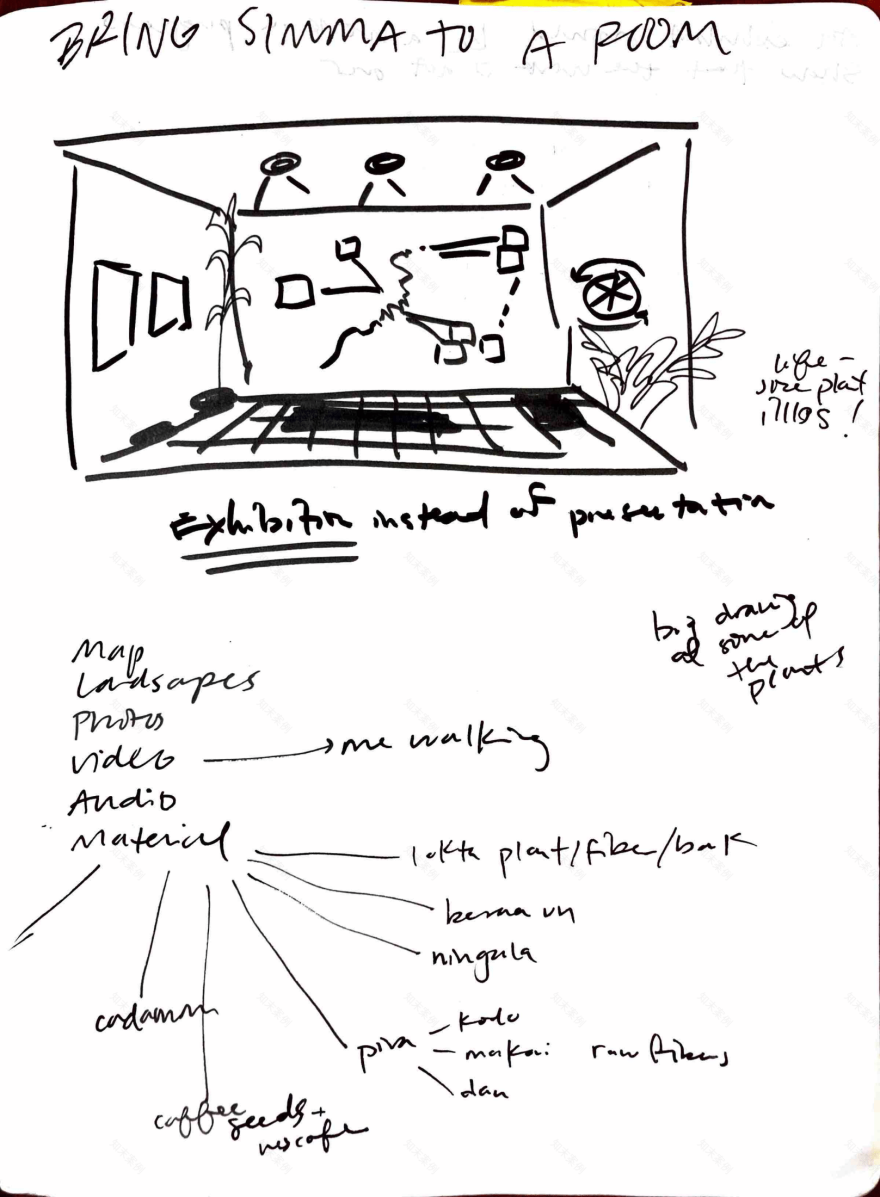 BRING SIMMA TO A ROOM
life-
size plat
illos!
Exhibition instead of presentation
big drawing
of some of
the
plants
Map
Landsapes
Photos
Video → me walking
Audio
Material
lokta plant/fiber/bark
ningala
cadamom
pira
kodo
makai raw fibers
dan
coffee
seeds +
nescafe